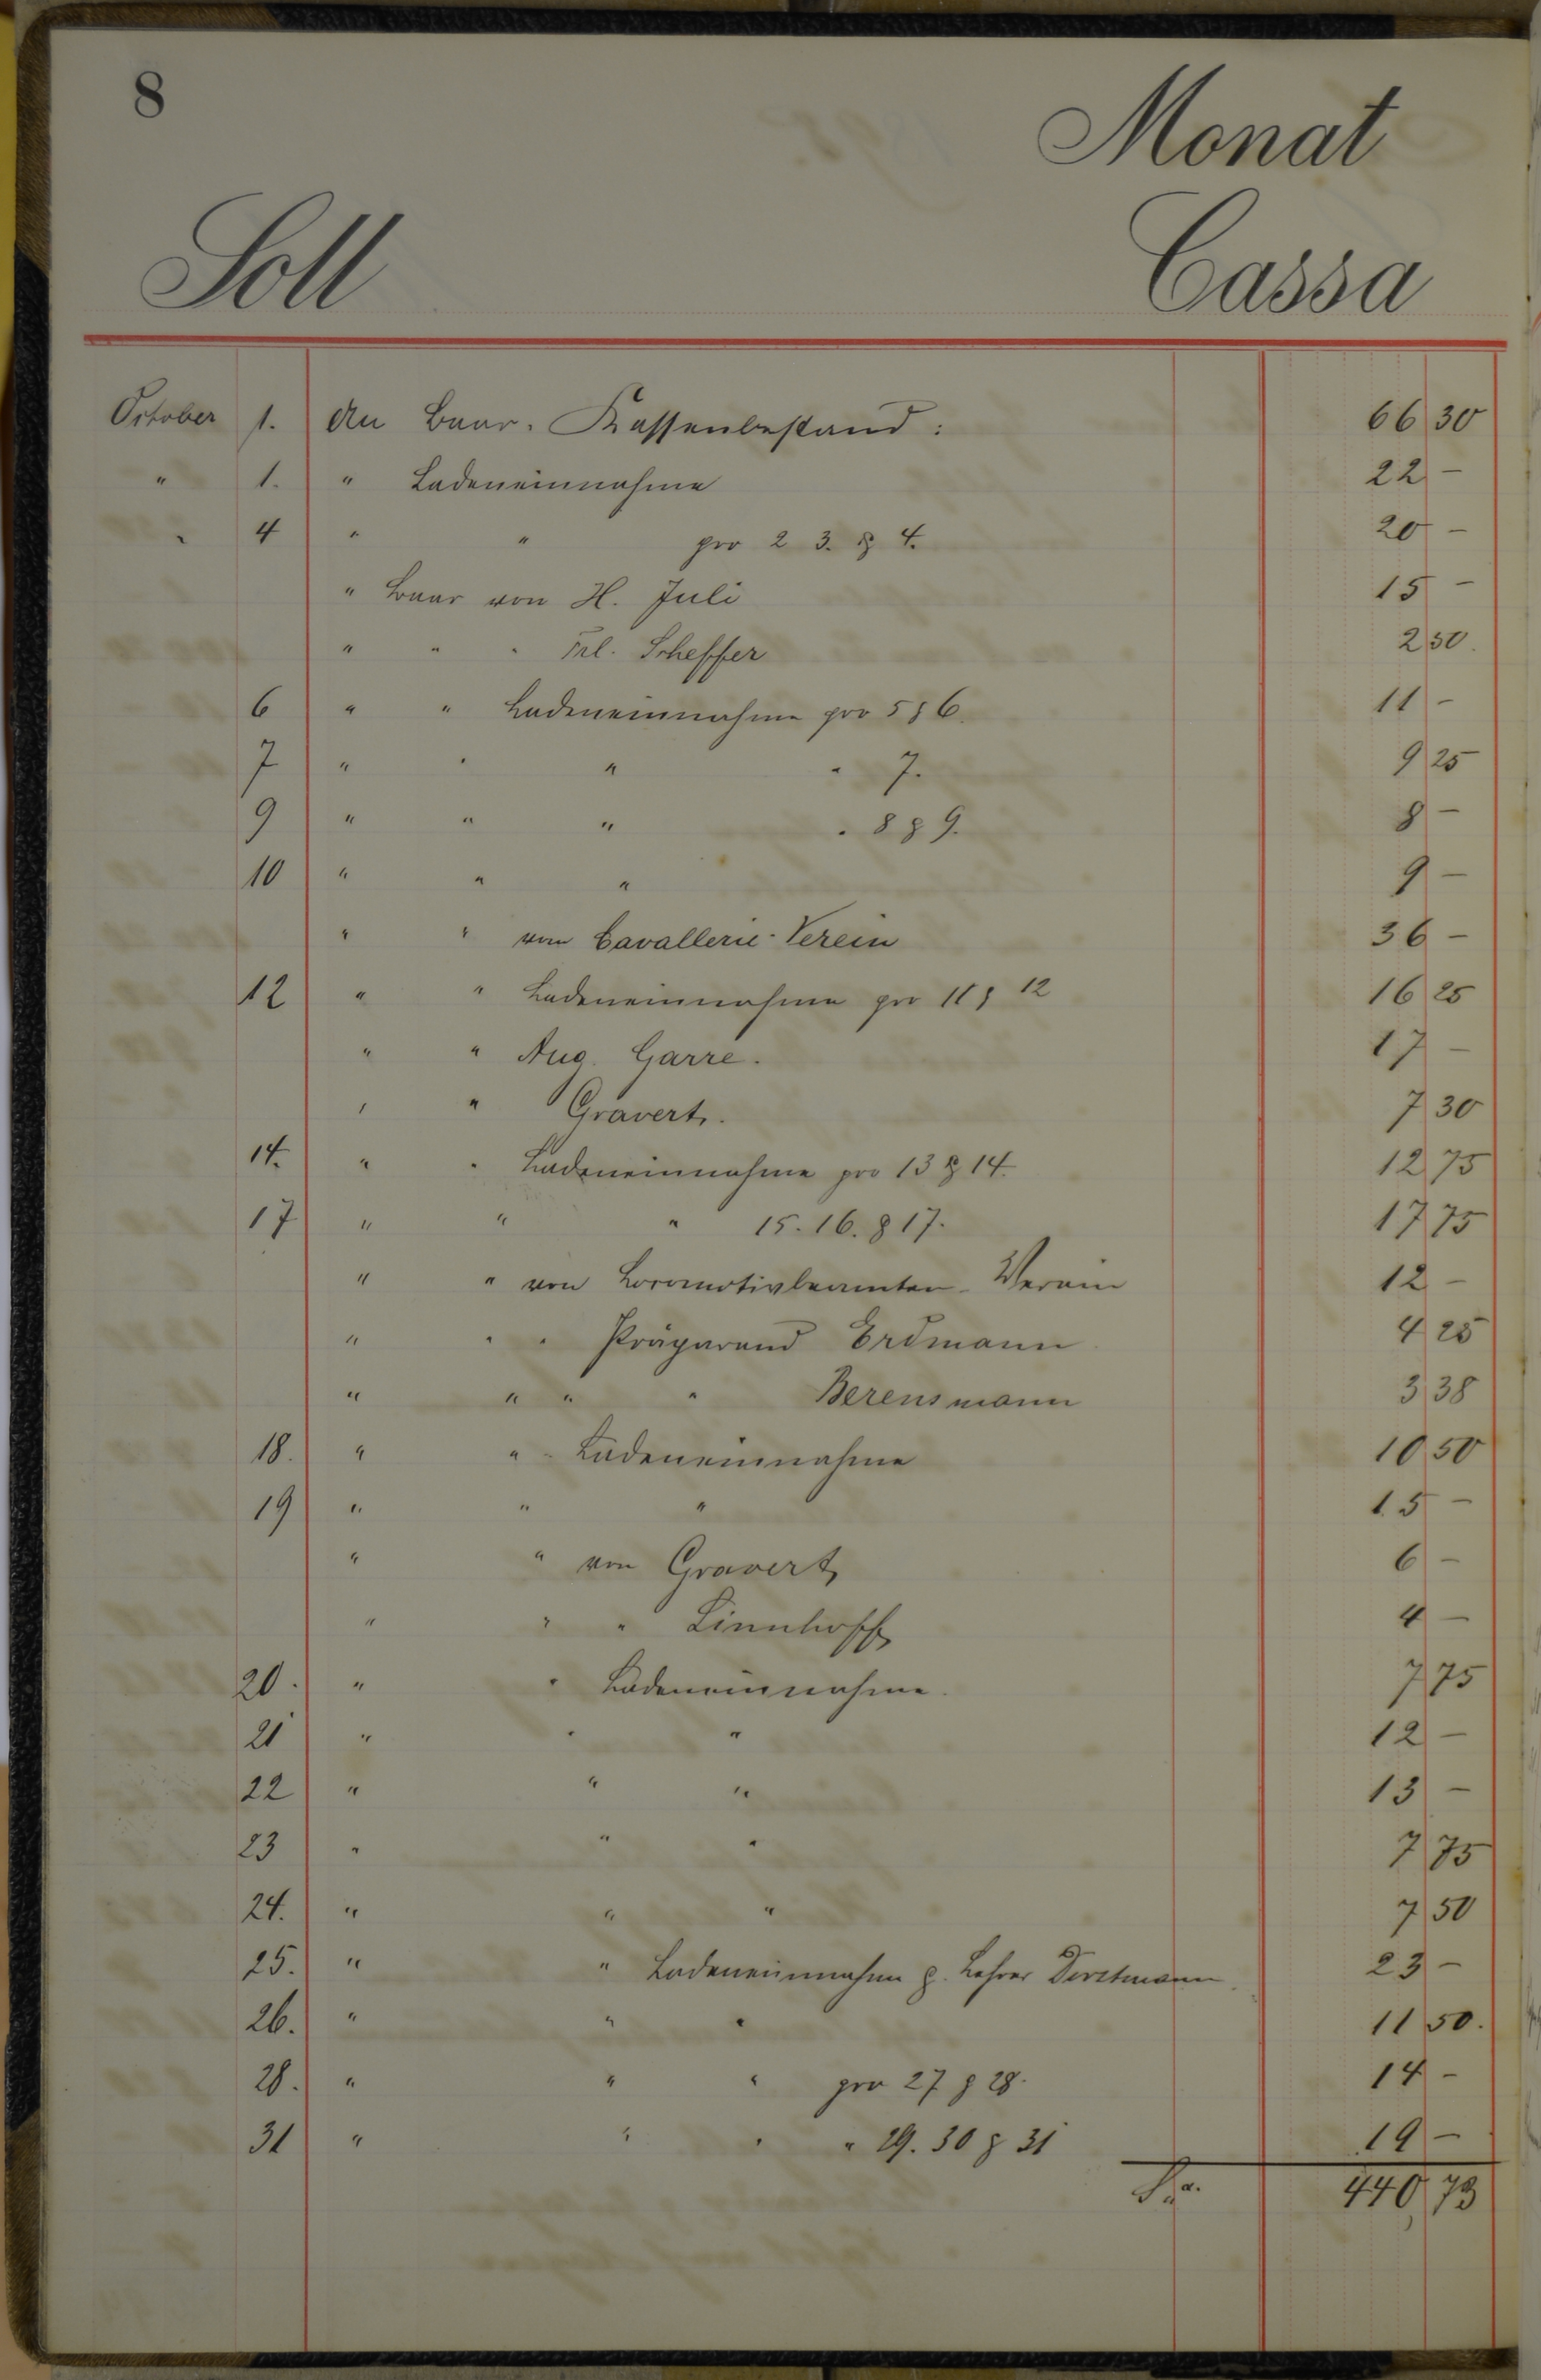 8
Monat
Soll Cassa
October 1. An Baar. Kassenbestand: 66 30
" 1. " Ladeneinnahme 22 –
" 4 " " pro 2 3. & 4. 20 –
" Baar von H. Juli 15 –
" " " Frl. Scheffer 2 50.
6 " " Ladeneinnahme pro 5 & 6. 11 –
7 " " " " 7. 9 25
9 " " " " 8 & 9. 8 –
10 " " " 9 –
" " vom Cavallerie-Verein 36 –
12 " " Ladeneinnahme pro 11 & 12 16 25
" " Aug. Garre. 17 –
" " Gravert. 7 30
14. " " Ladeneinnahme pro 13 & 14. 12 75
17 " " " 15. 16. & 17. 17 75
" " von Locomotivbeamten-Verein 12 –
" " " Präparand Erdmann 4 25
" " " " Berensmann 3 38
18. " " " Ladeneinnahme 10 50
19 " " " 15 –
" " von Gravert 6 –
" " " Linnhoff 4 –
20. " " Ladeneinnahme. 7 75
21 " " " 12 –
22 " " " 13 –
23 " " " 7 75
24. " " " 7 50
25. " " Ladeneinnahme p. Lehrer 23 –
26. " " " 11 50.
28. " " " pro 27 & 28. 14 –
31 " " " " 29. 30 & 31 19 –
Sa. 440,73